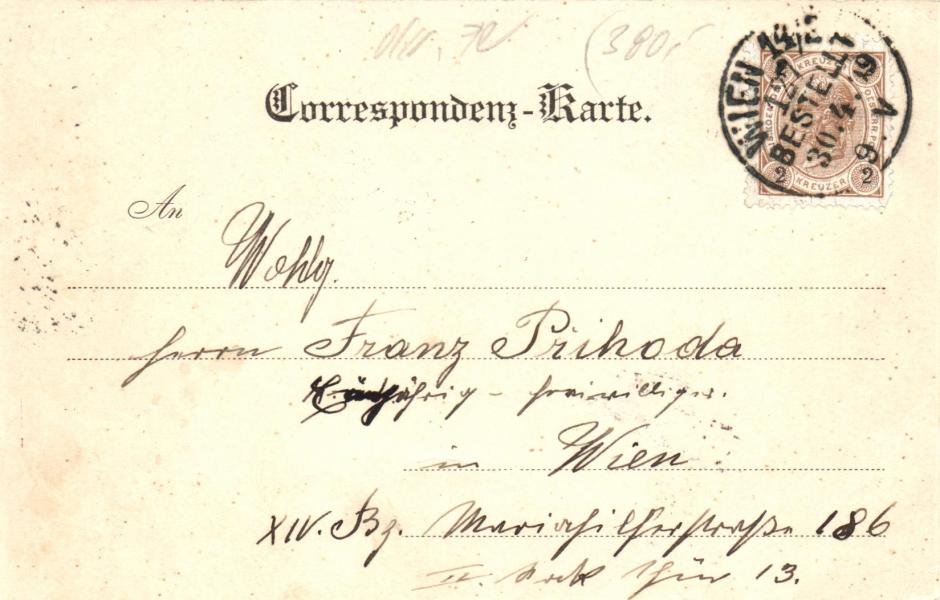 (380,-
Correspondenz-Karte.
WIEN 14/2
BESTELLT
30.4.
KREUZER
2 KREUZER 2
An
Wohlg.
Herrn Franz Prihoda
Einjährig - freiwilliger.
in Wien.
XIV. Bz. Mariahilferstraße 186
II. Stock Thür 13.